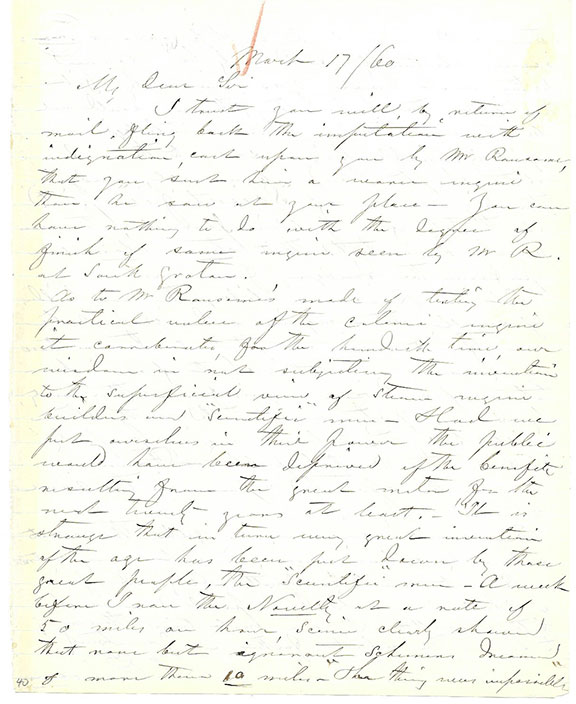 March 17/60
My Dear Sir
I trust you will, by return of
mail, fling back the imputation with
indignation, cast upon you by Mr Ransome,
that you sent him a worse engine
than he saw at your place – You can
have nothing to do with the degree of
finish of some engine seen by Mr R.
at South Groton.
As to Mr Ransome's mode of testing the
practical value of the caloric engine
it corroborates, for the hundredth time, our
wisdom in not subjecting the invention
to the superficial view of steam engine
builders and "Scientific" men – Had we
put ourselves in their power the public
would have been deprived of the benefits
resulting from the great motor for the
next twenty years at least. – It is
strange that in turn every great invention
of the age has been put down by those
great people, the "Scientific" men – A week
before I ran the Novelty at a rate of
50 miles an hour, Science clearly showed
that none but ignorant Schemers dreamed
of more than 10 miles – "The thing was impossible"
40